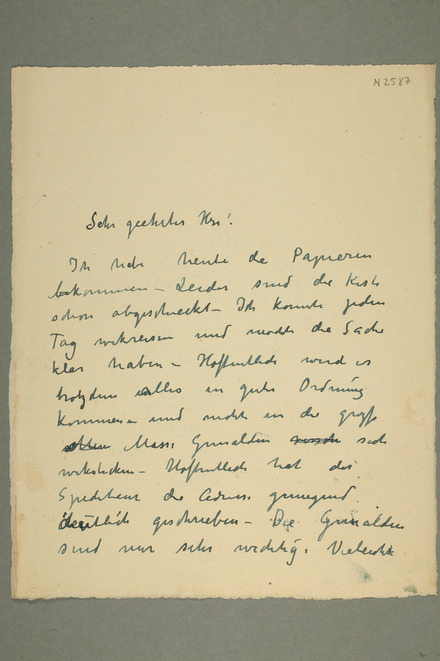 N 2587
Sehr geehrter Herr!
Ich habe heute de Papieren
bekommen – Leider sind die Kiste
schon abgeschieckt – Ich konnte jeden
Tag und mochte die Sache
klar haben – Hoffentlich wird es
trotzdem alles in guter Ordnung
kommen – und nicht in der
Masse Gemalden sich
verstecken – Hoffentlich hat der
Spediteur die Adresse genugend
deutlich geschrieben – Die Gemalden
sind mir sehr wichtig. Vieleicht